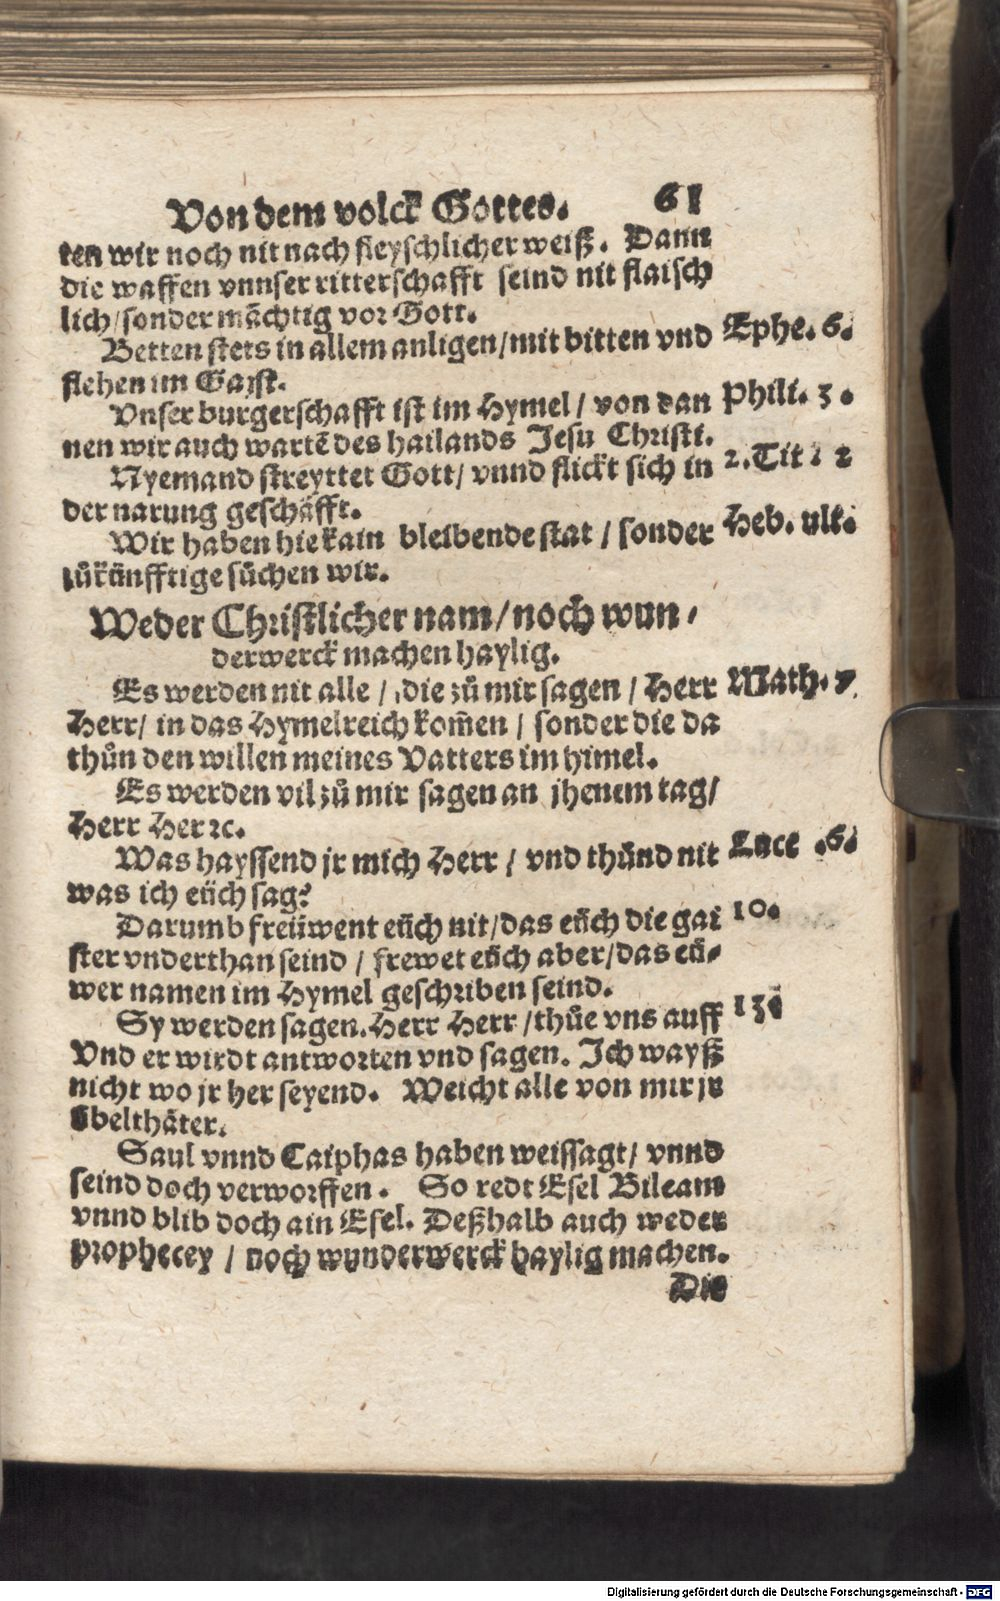 Von dem volck Gottes. 61
ten wir noch nit nach fleyschlicher weiß. Dann
die waffen vnnser ritterschafft seind nit flaisch
lich/sonder mächtig vor Gott.
Betten stets in allem anligen/mit bitten vnd Ephe. 6.
flehen im Gayst.
Vnser burgerschafft ist im Hymel / von dan Phili. 3.
nen wir auch wartẽ des hailands Jesu Christi.
Nyemand streyttet Gott/ vnnd flickt sich in 2. Tit: 2
der narung geschäfft.
Wir haben hie kain bleibende stat / sonder Heb. vlt.
zůkünfftige sůchen wir.
Weder Christlicher nam/noch wun,
derwerck machen haylig.
Es werden nit alle / die zů mir sagen / Herr Math. 7.
Herr/ in das Hymelreich kom̃en / sonder die da
thůn den willen meines Vatters im himel.
Es werden vil zů mir sagen an jhenem tag/
Herr Her ꝛc.
Was hayssend jr mich Herr / vnd thůnd nit Luce .6.
was ich eüch sag?
Darumb freüwent eüch nit/das eüch die gai 10.
ster vnderthan seind / frewet eüch aber/das eü-
wer namen im Hymel geschriben seind.
Sy werden sagen. Herr Herr /thůe vns auff 13.
Vnd er wirdt antworten vnd sagen. Ich wayß
nicht wo jr her seyend. Weicht alle von mir jr
übelthäter.
Saul vnnd Caiphas haben weissagt/ vnnd
seind doch verworffen. So redt Esel Bileam
vnnd blib doch ain Esel. Deßhalb auch weder
prophecey / noch wunderwerck haylig machen.
Die
Digitalisierung gefördert durch die Deutsche Forschungsgemeinschaft - DFG